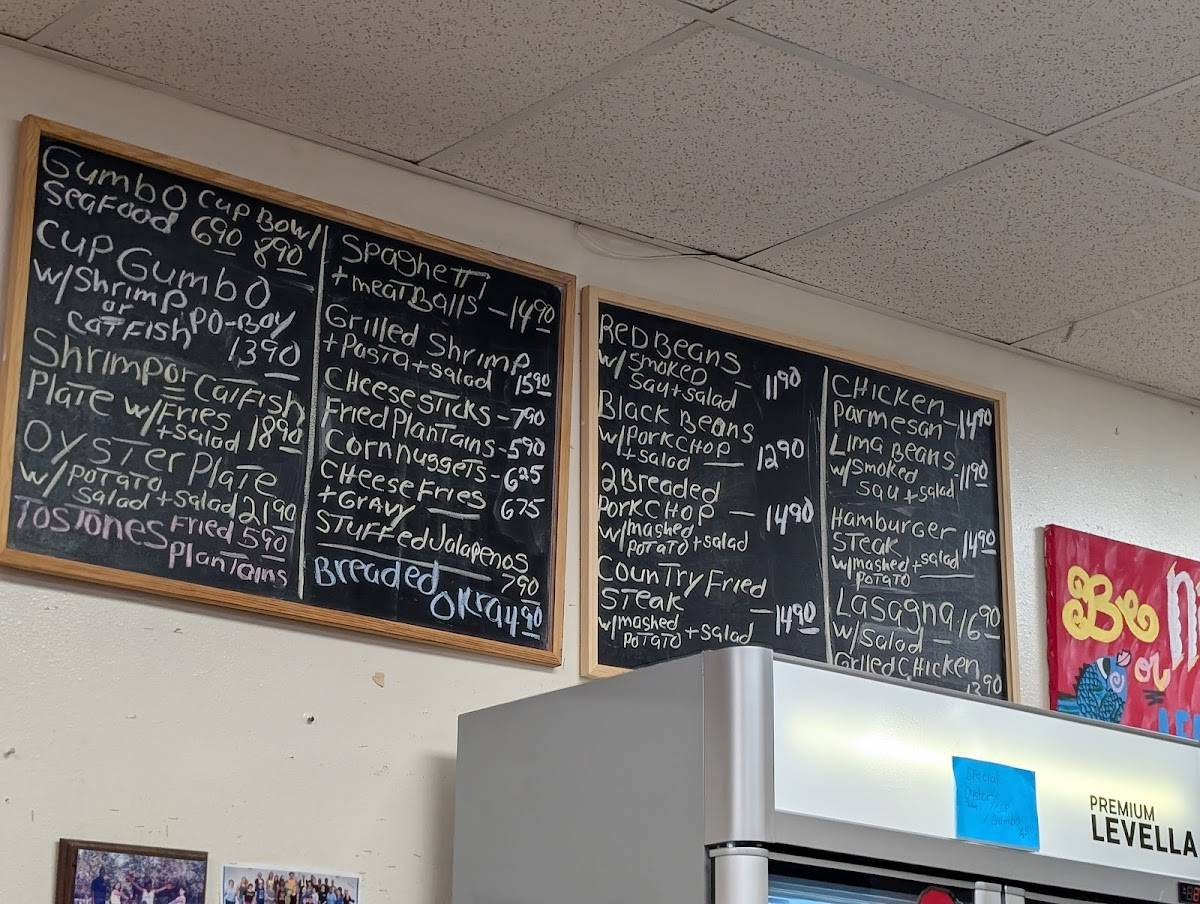 Gumbo Cup Bowl
SeaFood 690 890
Cup Gumbo
w/Shrimp PO-Boy
or
CatFish 1390
Shrimp or CatFish
Plate w/Fries
+salad 1890
Oyster Plate
w/Potato
salad+salad 2190
Tostones Fried 590
Plantains
Spaghetti
+meatBalls - 1490
Grilled Shrimp
+Pasta+salad 1590
Cheese sticks - 790
Fried Plantains - 590
Cornnuggets - 625
Cheese Fries
+Gravy 675
Stuffed Jalapenos
790
Breaded
Okra 490
Red Beans
w/smoked - 1190
Sau+salad
Black Beans
w/Porkchop 1290
+salad
2 Breaded
Porkchop - 1490
w/mashed
Potato+salad
Country Fried
Steak - 1490
w/mashed
Potato + salad
Chicken
Parmesan - 1490
Lima Beans
w/smoked - 1190
Sau+salad
Hamburger
Steak 1490
w/mashed+salad
Potato
Lasagna 1690
w/Salad
Grilled Chicken
1390
Be
or
Special
PREMIUM
LEVELLA